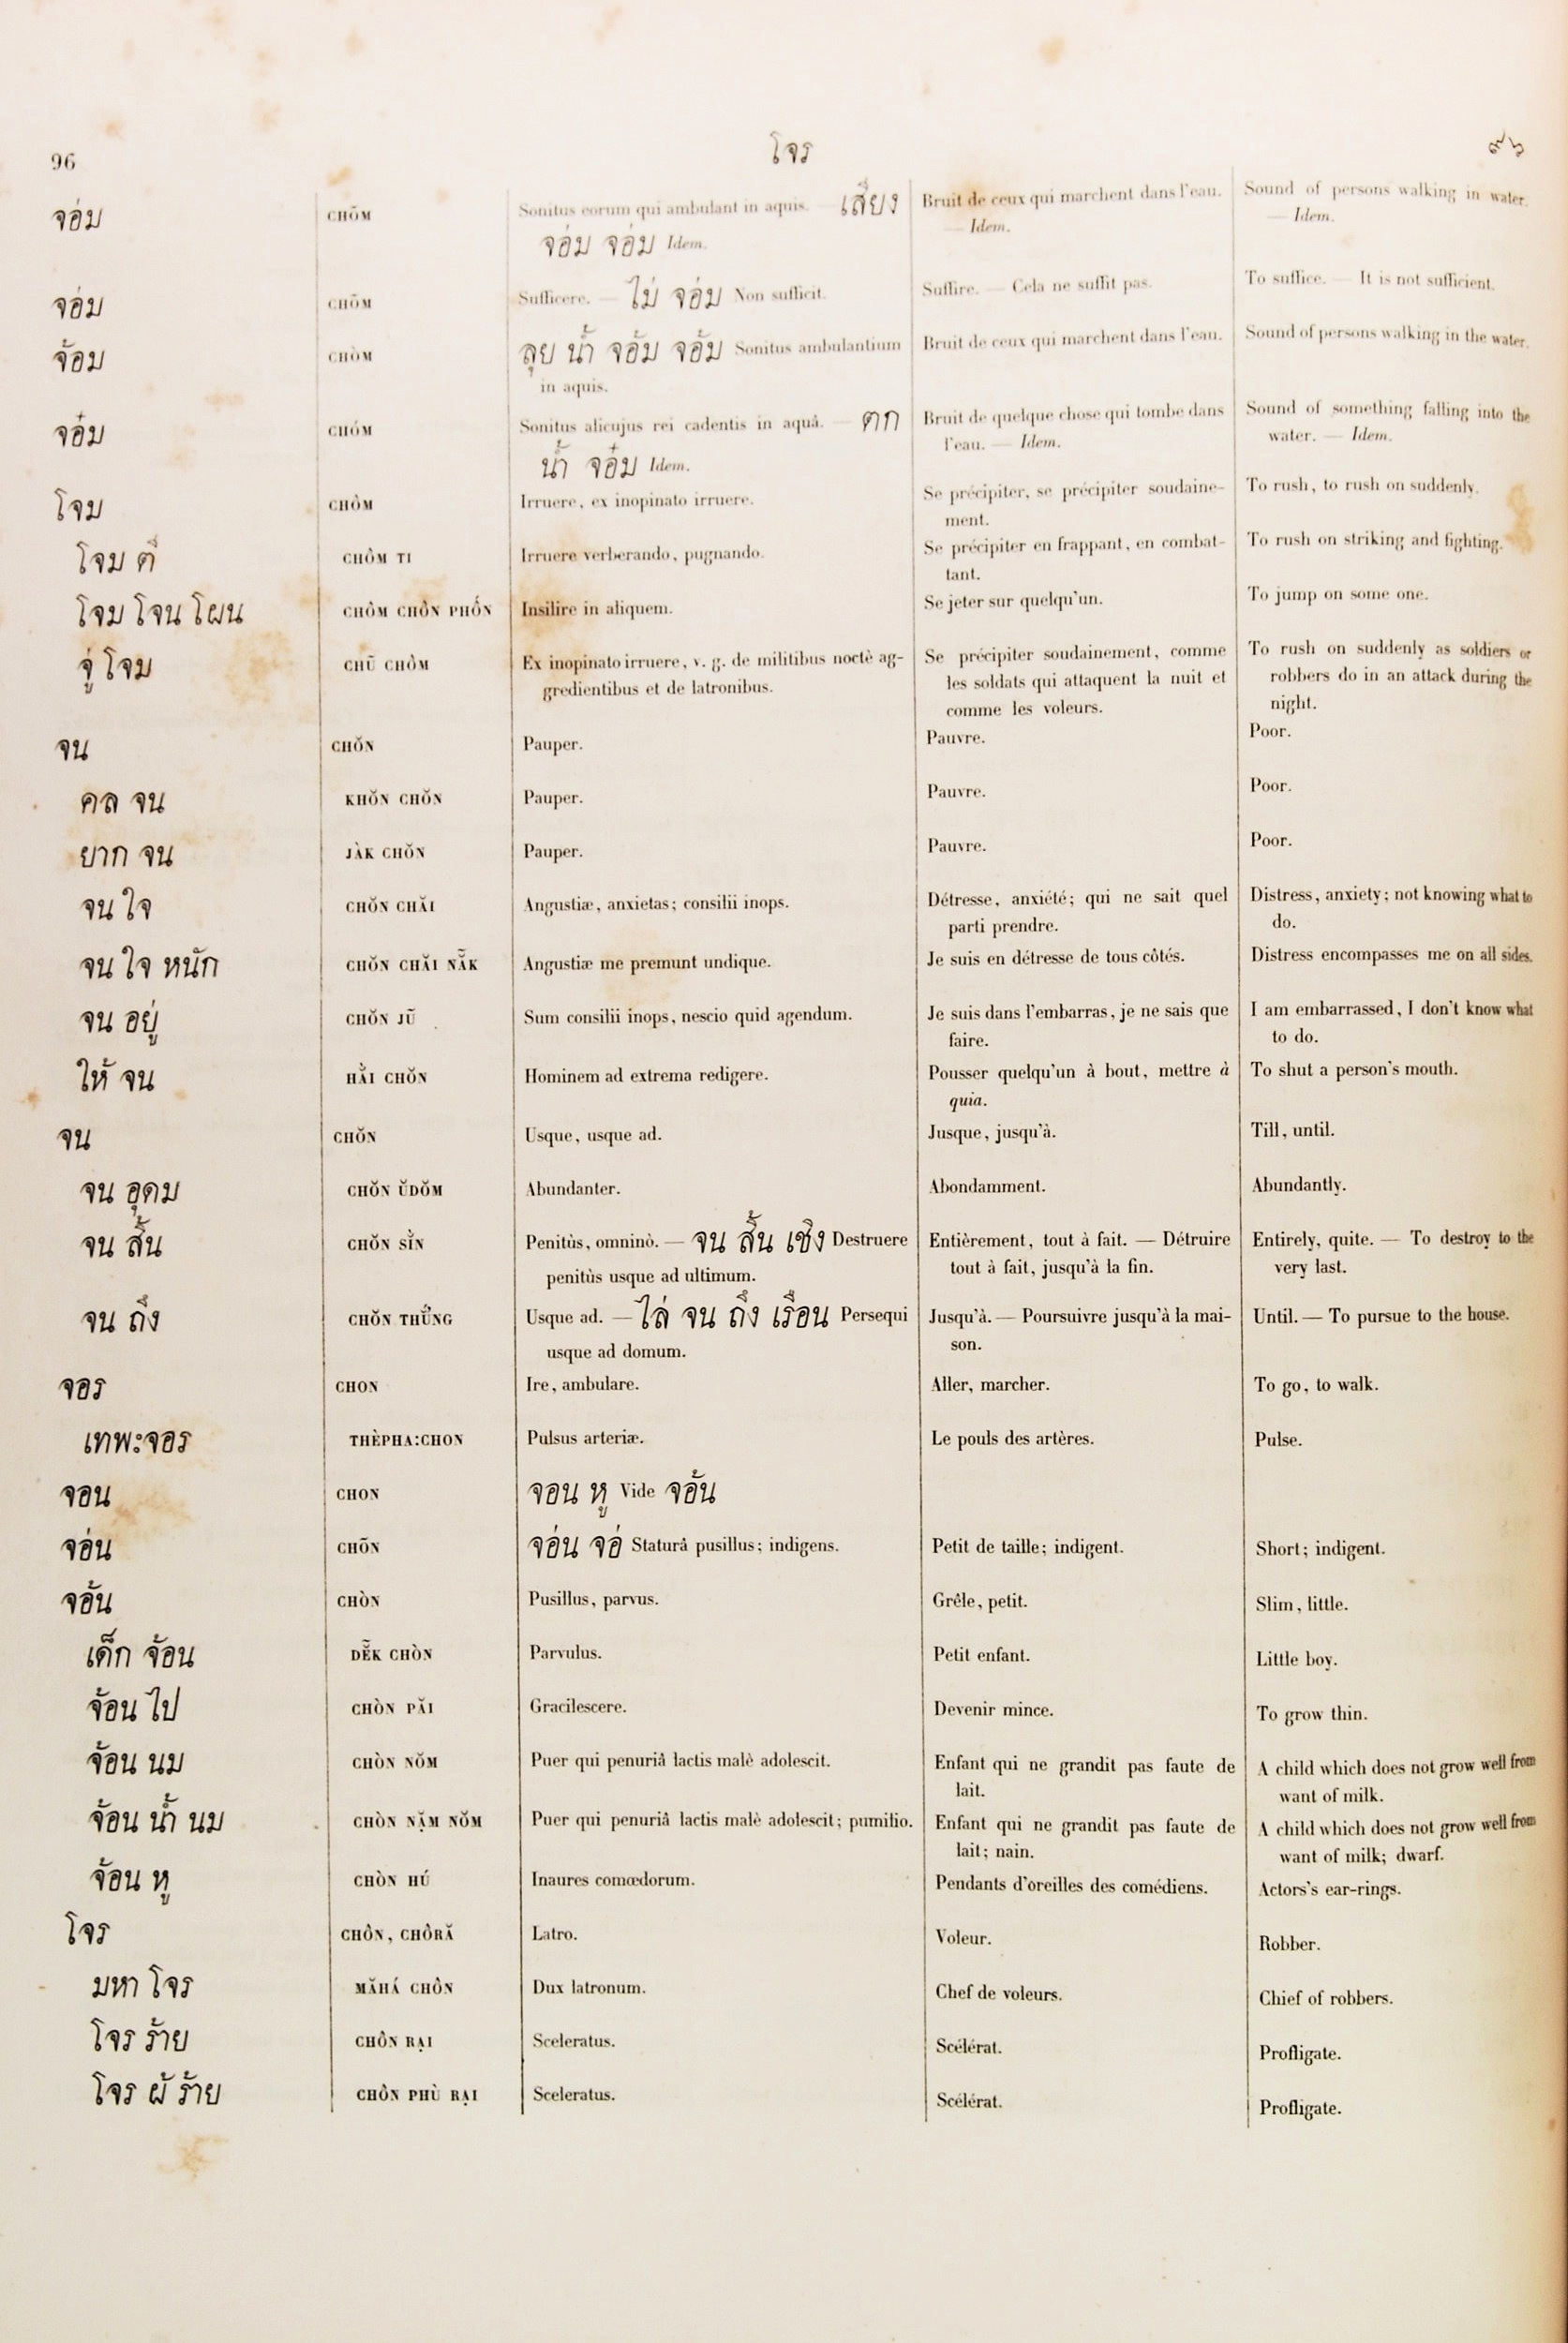 96 โจร ๙๖
จอ่ม CHŌM Sonitus eorum qui ambulant in aquis. — เสียง Bruit de ceux qui marchent dans l'eau. Sound of persons walking in water.
จอ่ม จอ่ม Idem. — Idem. — Idem.
จอ่ม CHŌM Sufficere. — ไม่ จอ่ม Non sufficit. Suffire. — Cela ne suffit pas. To suffice. — It is not sufficient.
จ้อม CHÒM ลุย น้ำ จอ้ม จอ้ม Sonitus ambulantium Bruit de ceux qui marchent dans l'eau. Sound of persons walking in the water.
in aquis.
จอ๋ม CHÓM Sonitus alicujus rei cadentis in aquâ. — ตก Bruit de quelque chose qui tombe dans Sound of something falling into the
น้ำ จอ๋ม Idem. l'eau. — Idem. water. — Idem.
โจม CHÔM Irruere, ex inopinato irruere. Se précipiter, se précipiter soudaine- To rush, to rush on suddenly.
ment.
โจม ตี CHÔM TI Irruere verberando, pugnando. Se précipiter en frappant, en combat- To rush on striking and fighting.
tant.
โจม โจน โผน CHÔM CHÔN PHỐN Insilire in aliquem. Se jeter sur quelqu'un. To jump on some one.
จู่ โจม CHŪ CHÔM Ex inopinato irruere, v. g. de militibus noctè ag- Se précipiter soudainement, comme To rush on suddenly as soldiers or
gredientibus et de latronibus. les soldats qui attaquent la nuit et robbers do in an attack during the
comme les voleurs. night.
จน CHŎN Pauper. Pauvre. Poor.
คล จน KHŎN CHŎN Pauper. Pauvre. Poor.
ยาก จน JÀK CHŎN Pauper. Pauvre. Poor.
จน ใจ CHŎN CHĂI Angustiæ, anxietas; consilii inops. Détresse, anxiété; qui ne sait quel Distress, anxiety; not knowing what to
parti prendre. do.
จน ใจ หนัก CHŎN CHĂI NẴK Angustiæ me premunt undique. Je suis en détresse de tous côtés. Distress encompasses me on all sides.
จน อยู่ CHŎN JŪ Sum consilii inops, nescio quid agendum. Je suis dans l'embarras, je ne sais que I am embarrassed, I don't know what
faire. to do.
ให้ จน HẰI CHŎN Hominem ad extrema redigere. Pousser quelqu'un à bout, mettre à To shut a person's mouth.
quia.
จน CHŎN Usque, usque ad. Jusque, jusqu'à. Till, until.
จน อุดม CHŎN ŬDŎM Abundanter. Abondamment. Abundantly.
จน สิ้น CHŎN SĬ̀N Penitùs, omninò. — จน สิ้น เชิง Destruere Entièrement, tout à fait. — Détruire Entirely, quite. — To destroy to the
penitùs usque ad ultimum. tout à fait, jusqu'à la fin. very last.
จน ถึง CHŎN THŬ́NG Usque ad. — ไล่ จน ถึง เรือน Persequi Jusqu'à. — Poursuivre jusqu'à la mai- Until. — To pursue to the house.
usque ad domum. son.
จอร CHON Ire, ambulare. Aller, marcher. To go, to walk.
เทพะจอร THÈPHA:CHON Pulsus arteriæ. Le pouls des artères. Pulse.
จอน CHON จอน หู Vide จอ้น
จอ่น CHŌN จอ่น จอ่ Staturâ pusillus; indigens. Petit de taille; indigent. Short; indigent.
จอ้น CHÒN Pusillus, parvus. Grêle, petit. Slim, little.
เด็ก จ้อน DĔ̃K CHÒN Parvulus. Petit enfant. Little boy.
จ้อน ไป CHÒN PĂI Gracilescere. Devenir mince. To grow thin.
จ้อน นม CHÒN NŎM Puer qui penuriâ lactis malè adolescit. Enfant qui ne grandit pas faute de A child which does not grow well from
lait. want of milk.
จ้อน น้ำ นม CHÒN NẶM NŎM Puer qui penuriâ lactis malè adolescit; pumilio. Enfant qui ne grandit pas faute de A child which does not grow well from
lait; nain. want of milk; dwarf.
จ้อน หู CHÒN HÚ Inaures comœdorum. Pendants d'oreilles des comédiens. Actors's ear-rings.
โจร CHÔN, CHÔRĂ Latro. Voleur. Robber.
มหา โจร MĂHÁ CHÔN Dux latronum. Chef de voleurs. Chief of robbers.
โจร ร้าย CHÔN RẠI Sceleratus. Scélérat. Profligate.
โจร ผู้ ร้าย CHÔN PHÙ RẠI Sceleratus. Scélérat. Profligate.